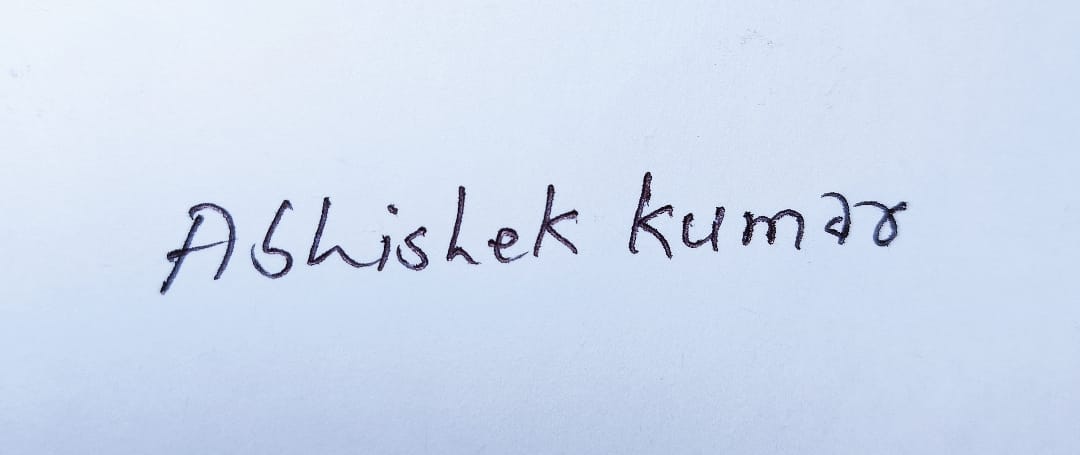 Abhishek kumar